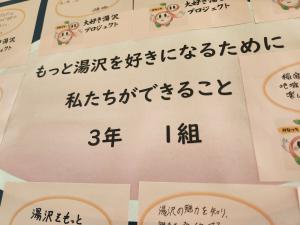 大好き湯沢
プロジェクト
大好き湯沢
プロジェクト
もっと湯沢を好きになるために
私たちができること
3年 1組
湯沢をもっと
湯沢の魅力を知り、